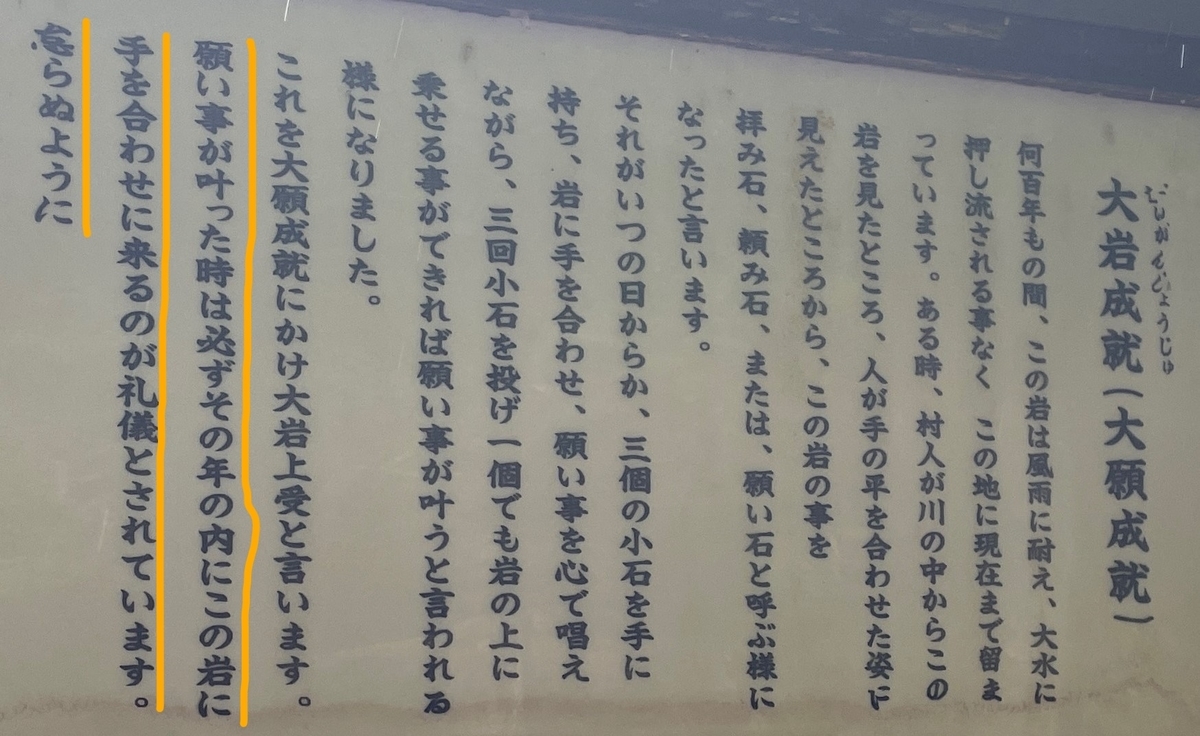 大岩成就(大願成就)
だいがんじょうじゅ
何百年もの間、この岩は風雨に耐え、大水に
押し流される事なく この地に現在まで留ま
っています。ある時、村人が川の中からこの
岩を見たところ、人が手の平を合わせた姿に
見えたところから、この岩の事を
拝み石、頼み石、または、願い石と呼ぶ様に
なったと言います。
それがいつの日からか、三個の小石を手に
持ち、岩に手を合わせ、願い事を心で唱え
ながら、三回小石を投げ一個でも岩の上に
乗せる事ができれば願い事が叶うと言われる
様になりました。
これを大願成就にかけ大岩上受と言います。
願い事が叶った時は必ずその年の内にこの岩に
手を合わせに来るのが礼儀とされています。
怠らぬように